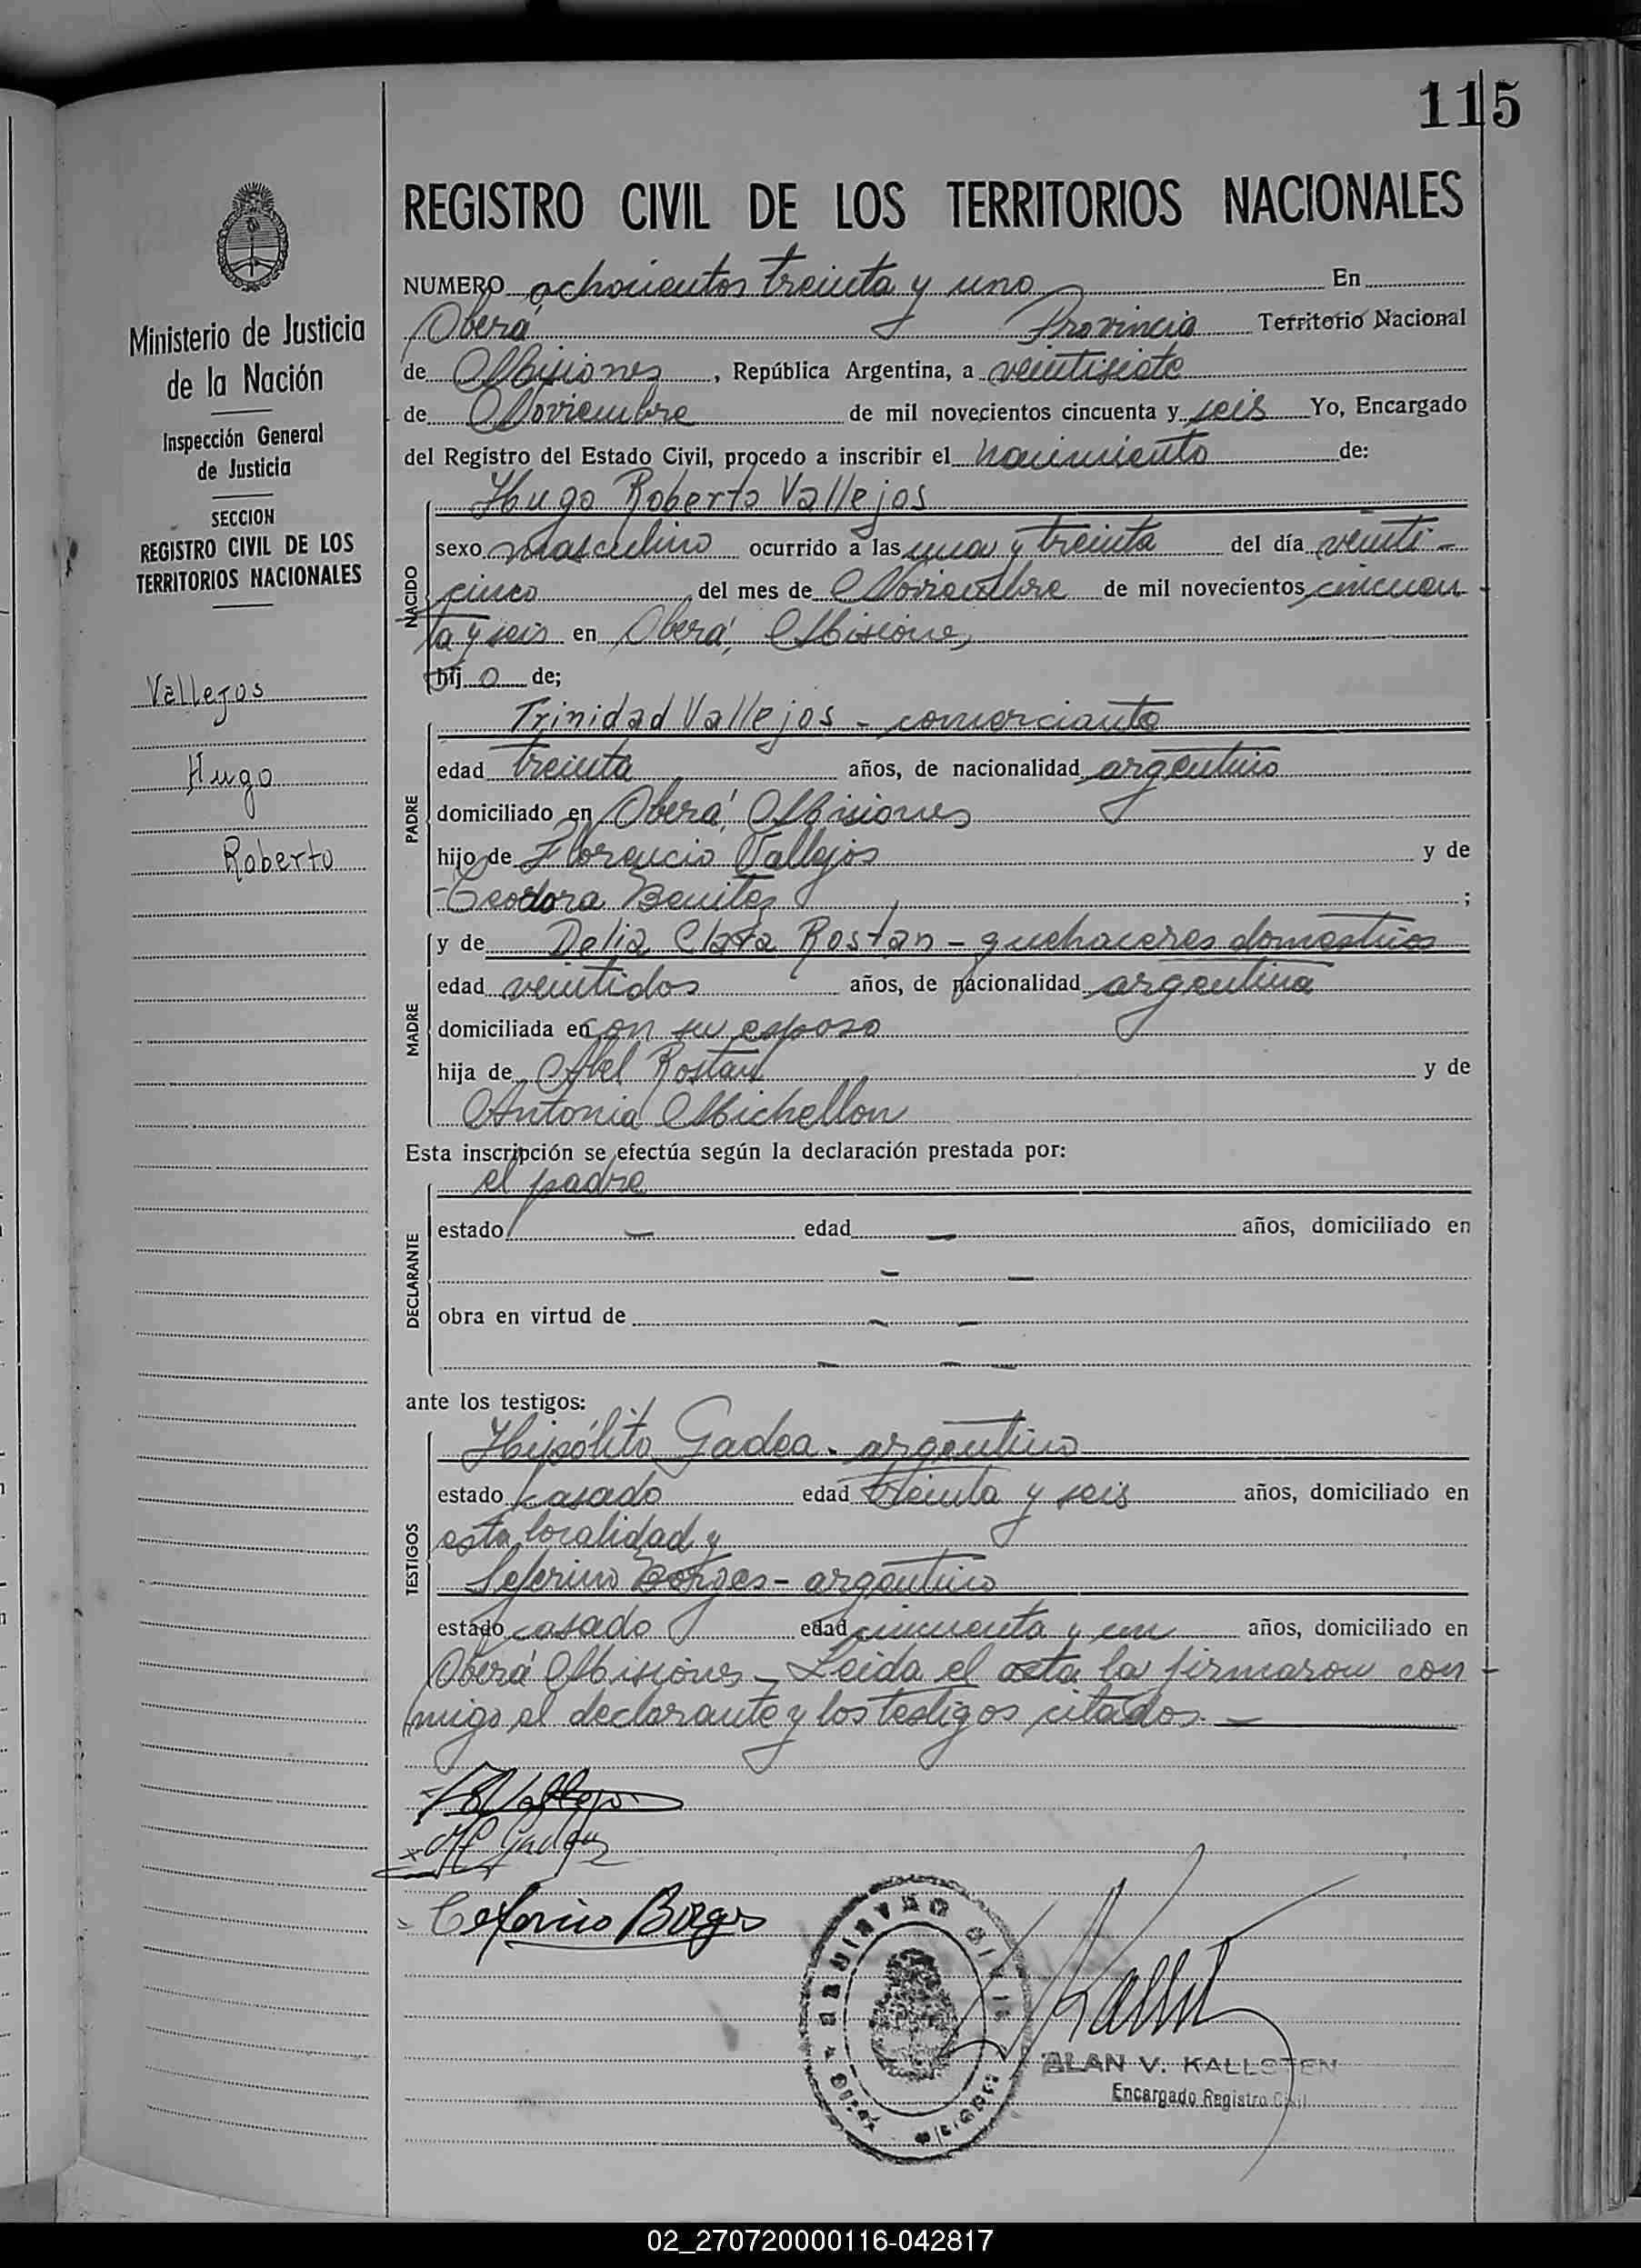 115
REGISTRO CIVIL DE LOS TERRITORIOS NACIONALES
NUMERO ochocientos treinta y uno En
Oberá Provincia Territorio Nacional
de Misiones, República Argentina, a veintisiete
de Noviembre de mil novecientos cincuenta y seis Yo, Encargado
del Registro del Estado Civil, procedo a inscribir el nacimiento de:
Ministerio de Justicia
de la Nación
Inspección General
de Justicia
SECCION
REGISTRO CIVIL DE LOS
TERRITORIOS NACIONALES
Vallejos
Hugo
Roberto
NACIDO
Hugo Roberto Vallejos
sexo masculino ocurrido a las una y treinta del día veinti-
cinco del mes de Noviembre de mil novecientos cincuen
ta y seis en Oberá, Misiones
hijo de;
PADRE
Trinidad Vallejos - comerciante
edad treinta años, de nacionalidad argentino
domiciliado en Oberá, Misiones
hijo de Florencio Vallejos y de
Teodora Benitez ;
MADRE
y de Delia Clara Rostan - quehaceres domesticos
edad veintidos años, de nacionalidad argentina
domiciliada en con su esposo
hija de Abel Rostan y de
Antonia Michellon
Esta inscripción se efectúa según la declaración prestada por:
DECLARANTE
el padre
estado — edad — años, domiciliado en
- —
obra en virtud de - —
— — —
ante los testigos:
TESTIGOS
Hipólito Gadea - argentino
estado casado edad treinta y seis años, domiciliado en
esta localidad y
Seferino Borges - argentino
estado casado edad cincuenta y un años, domiciliado en
Oberá Misiones - Leida el acta la firmaron con-
migo el declarante y los testigos citados. —
Ceferino Borges
REGISTRO CIVIL
ALAN V. KALLSTEN
Encargado Registro Civil
02_270720000116-042817